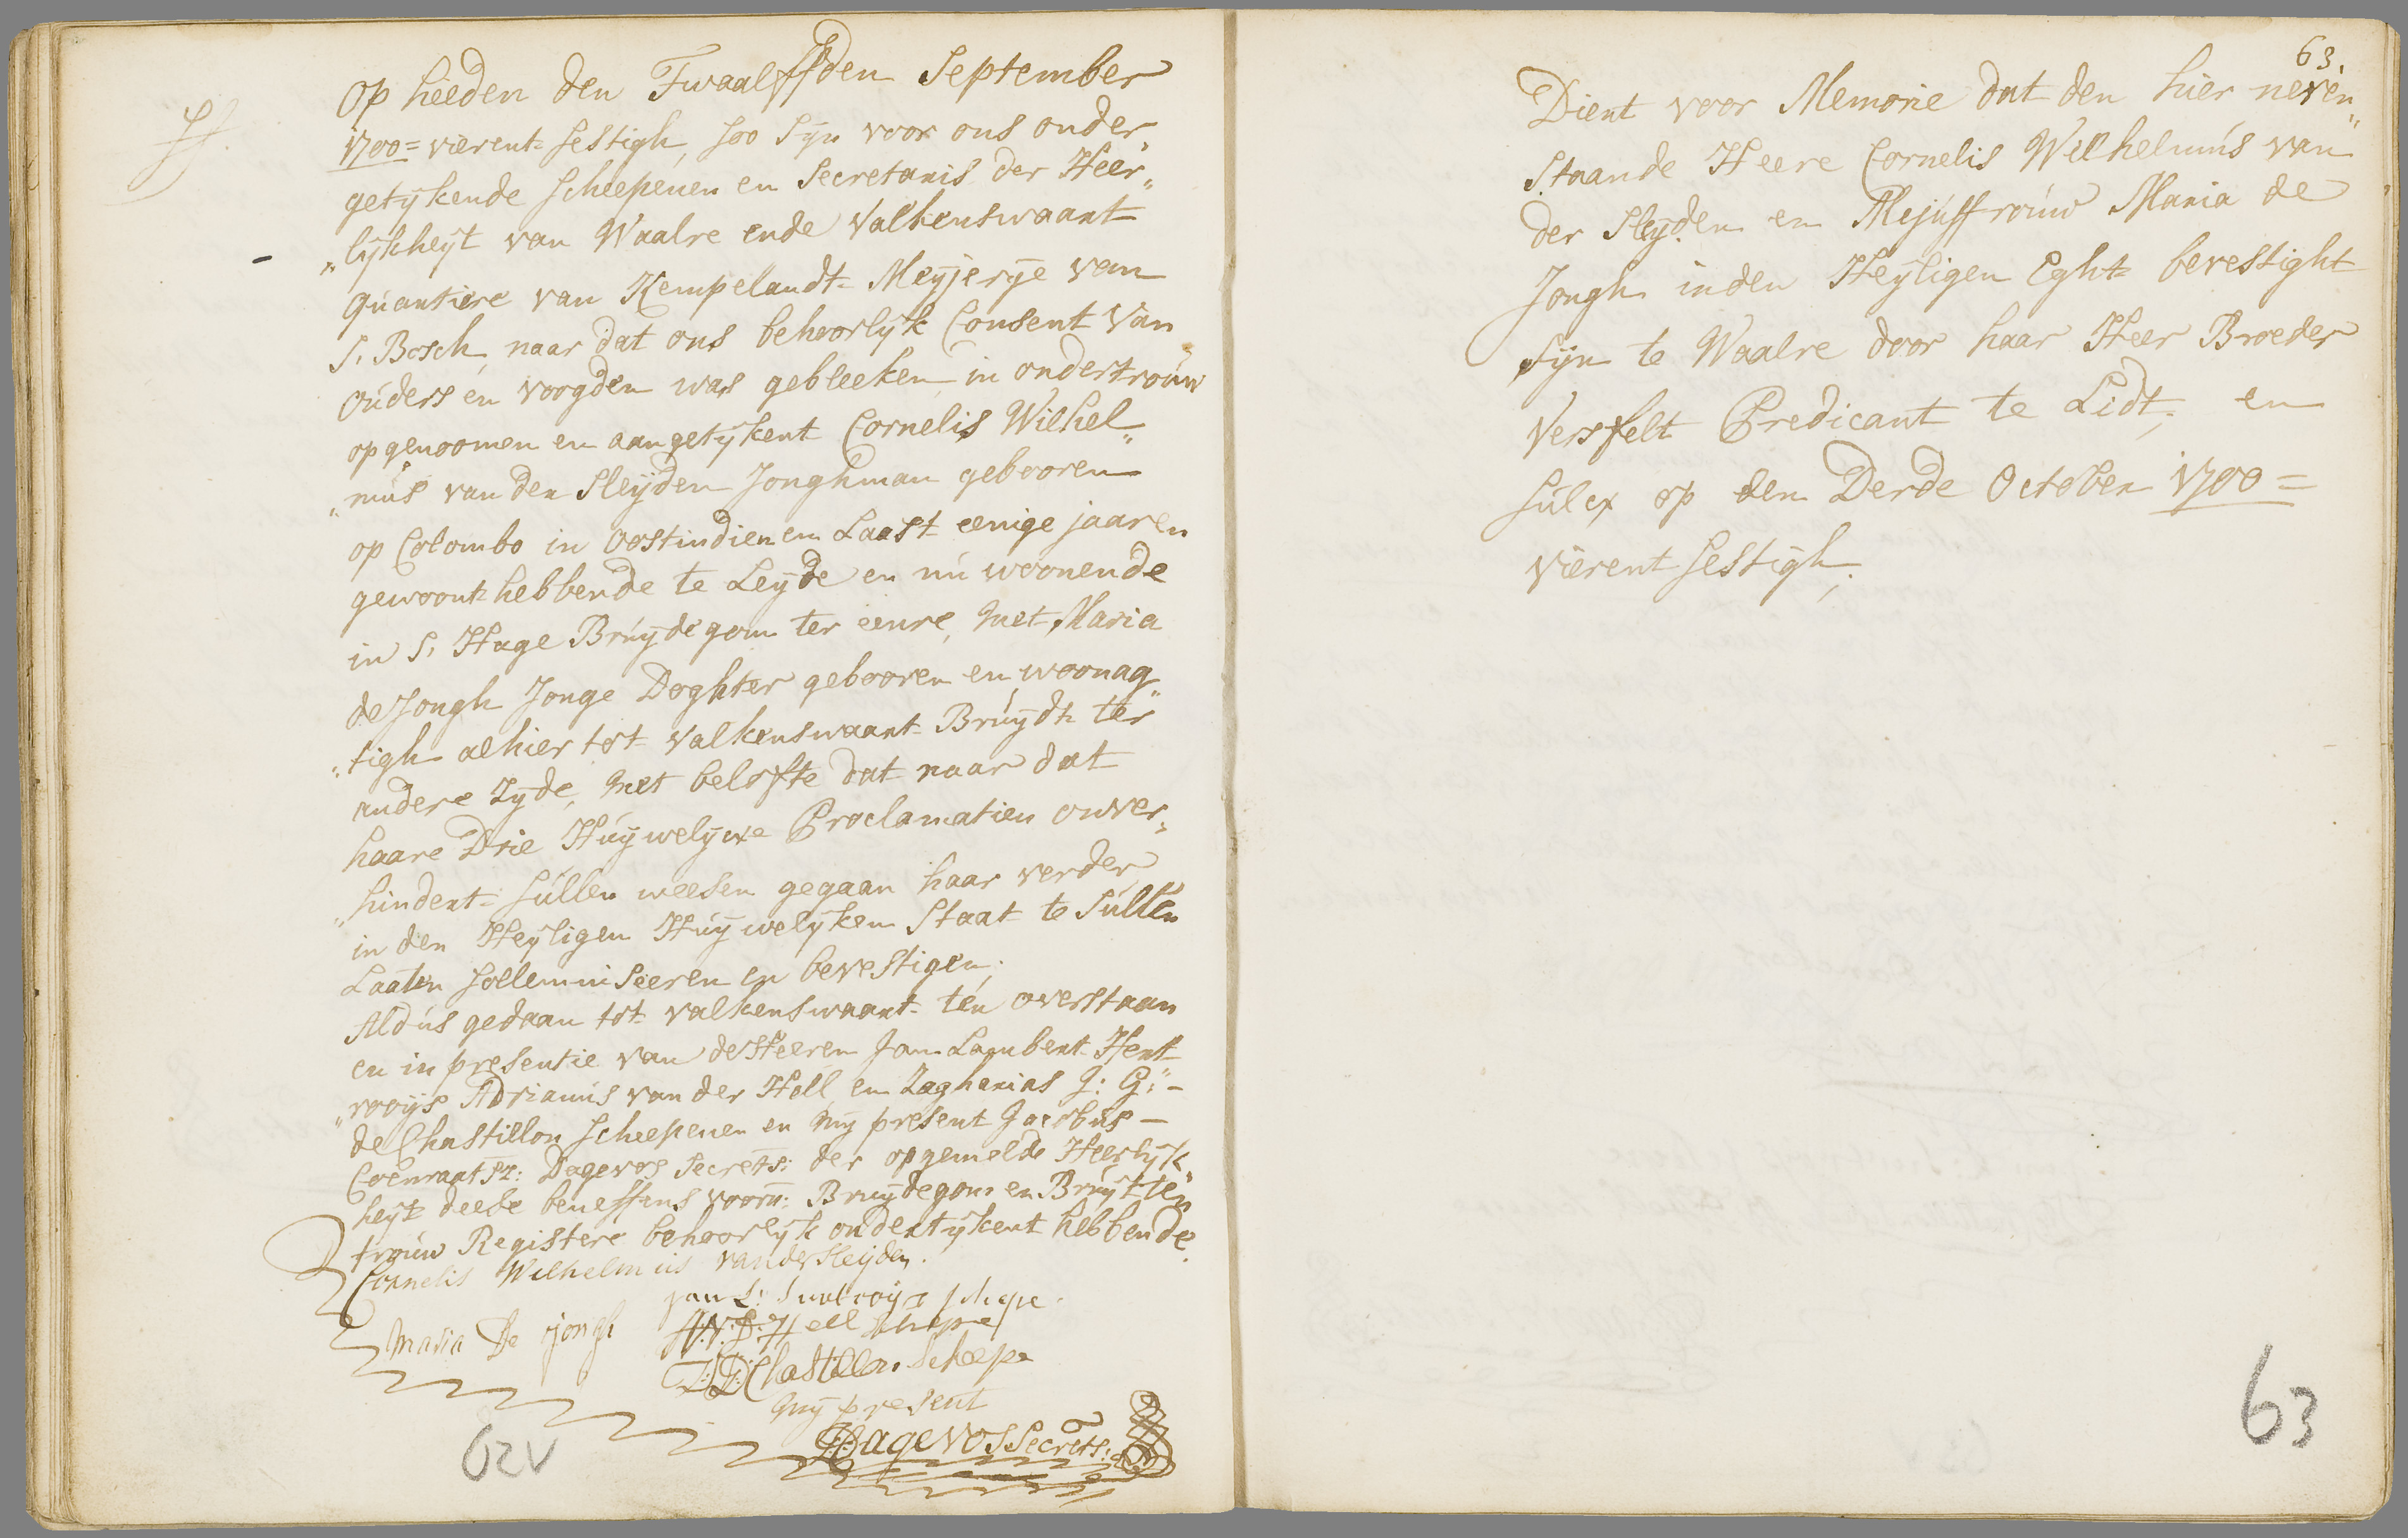 Op heeden den Twaalffden September
1700= vierent= sestigh, soo sijn voor ons onder„
getijkende scheepenen en Secretaris der Heer„
„lijkheijt van Waalre ende Valkenswaart
Quartiere van Kempelandt= Meijerije van
S. Bosch, naar dat ons behoorlijk Consent van
Ouders en voogden was gebleeken, in ondertrouw
opgenoomen en aangetijkent Cornelis Wilhel„
„mus van der Sleijden Jonghman gebooren
op Colombo in Oostindien en Laast eenige jaaren
gewoont hebbende te Leijde en nu woonende
in S. Hage Bruijdegom ter eenre, met Maria
de Jongh Jonge Doghter gebooren en woonag„
„tigh alhier tot Valkenswaart Bruijdt ter
andere Zijde, met belofte dat naar dat
haare Drie Huijwelijxe Proclamatien onver„
„hindert= sullen weesen gegaan haar verder
in den Heijligen Huijwelijken Staat te sullen
Laaten sollemniseeren en bevestigen,
Aldus gedaan tot Valkenswaart ten overstaan
en in presentie van de Heeren Jan Lambert Hent„
„rooijs Adrianus van der Hell en Zagharias J: G: –
de Chastillon Scheepenen en mij present Jacobus –
Coenraat Sz: Dagevos Secrets: der opgemelde Heerlijk„
heijt deese beneffens voorn: Bruijdegom en Bruijt ten
trouw Registere behoorlijk ondertijkent hebbende.
Cornelis Wilhelmus van der Sleijden.
Jan L: Hentrooijs schepe
Maria De Jongh
A: V: D: Hell schepe
Z: D: Chastillon Scheepe
mij present
Dagevos Secrets:
62v
63.
Dient voor Memorie dat den hier neven„
staande Heere Cornelis Wilhelmus van
der Sleijden en Mejuffrouw Maria de
Jongh inden Heijligen Eght bevestight
sijn te Waalre door haar Heer Broeder
Versfelt Predicant te Lidt, en
sulcx op den Derde October 1700=
vierent sestigh;
63